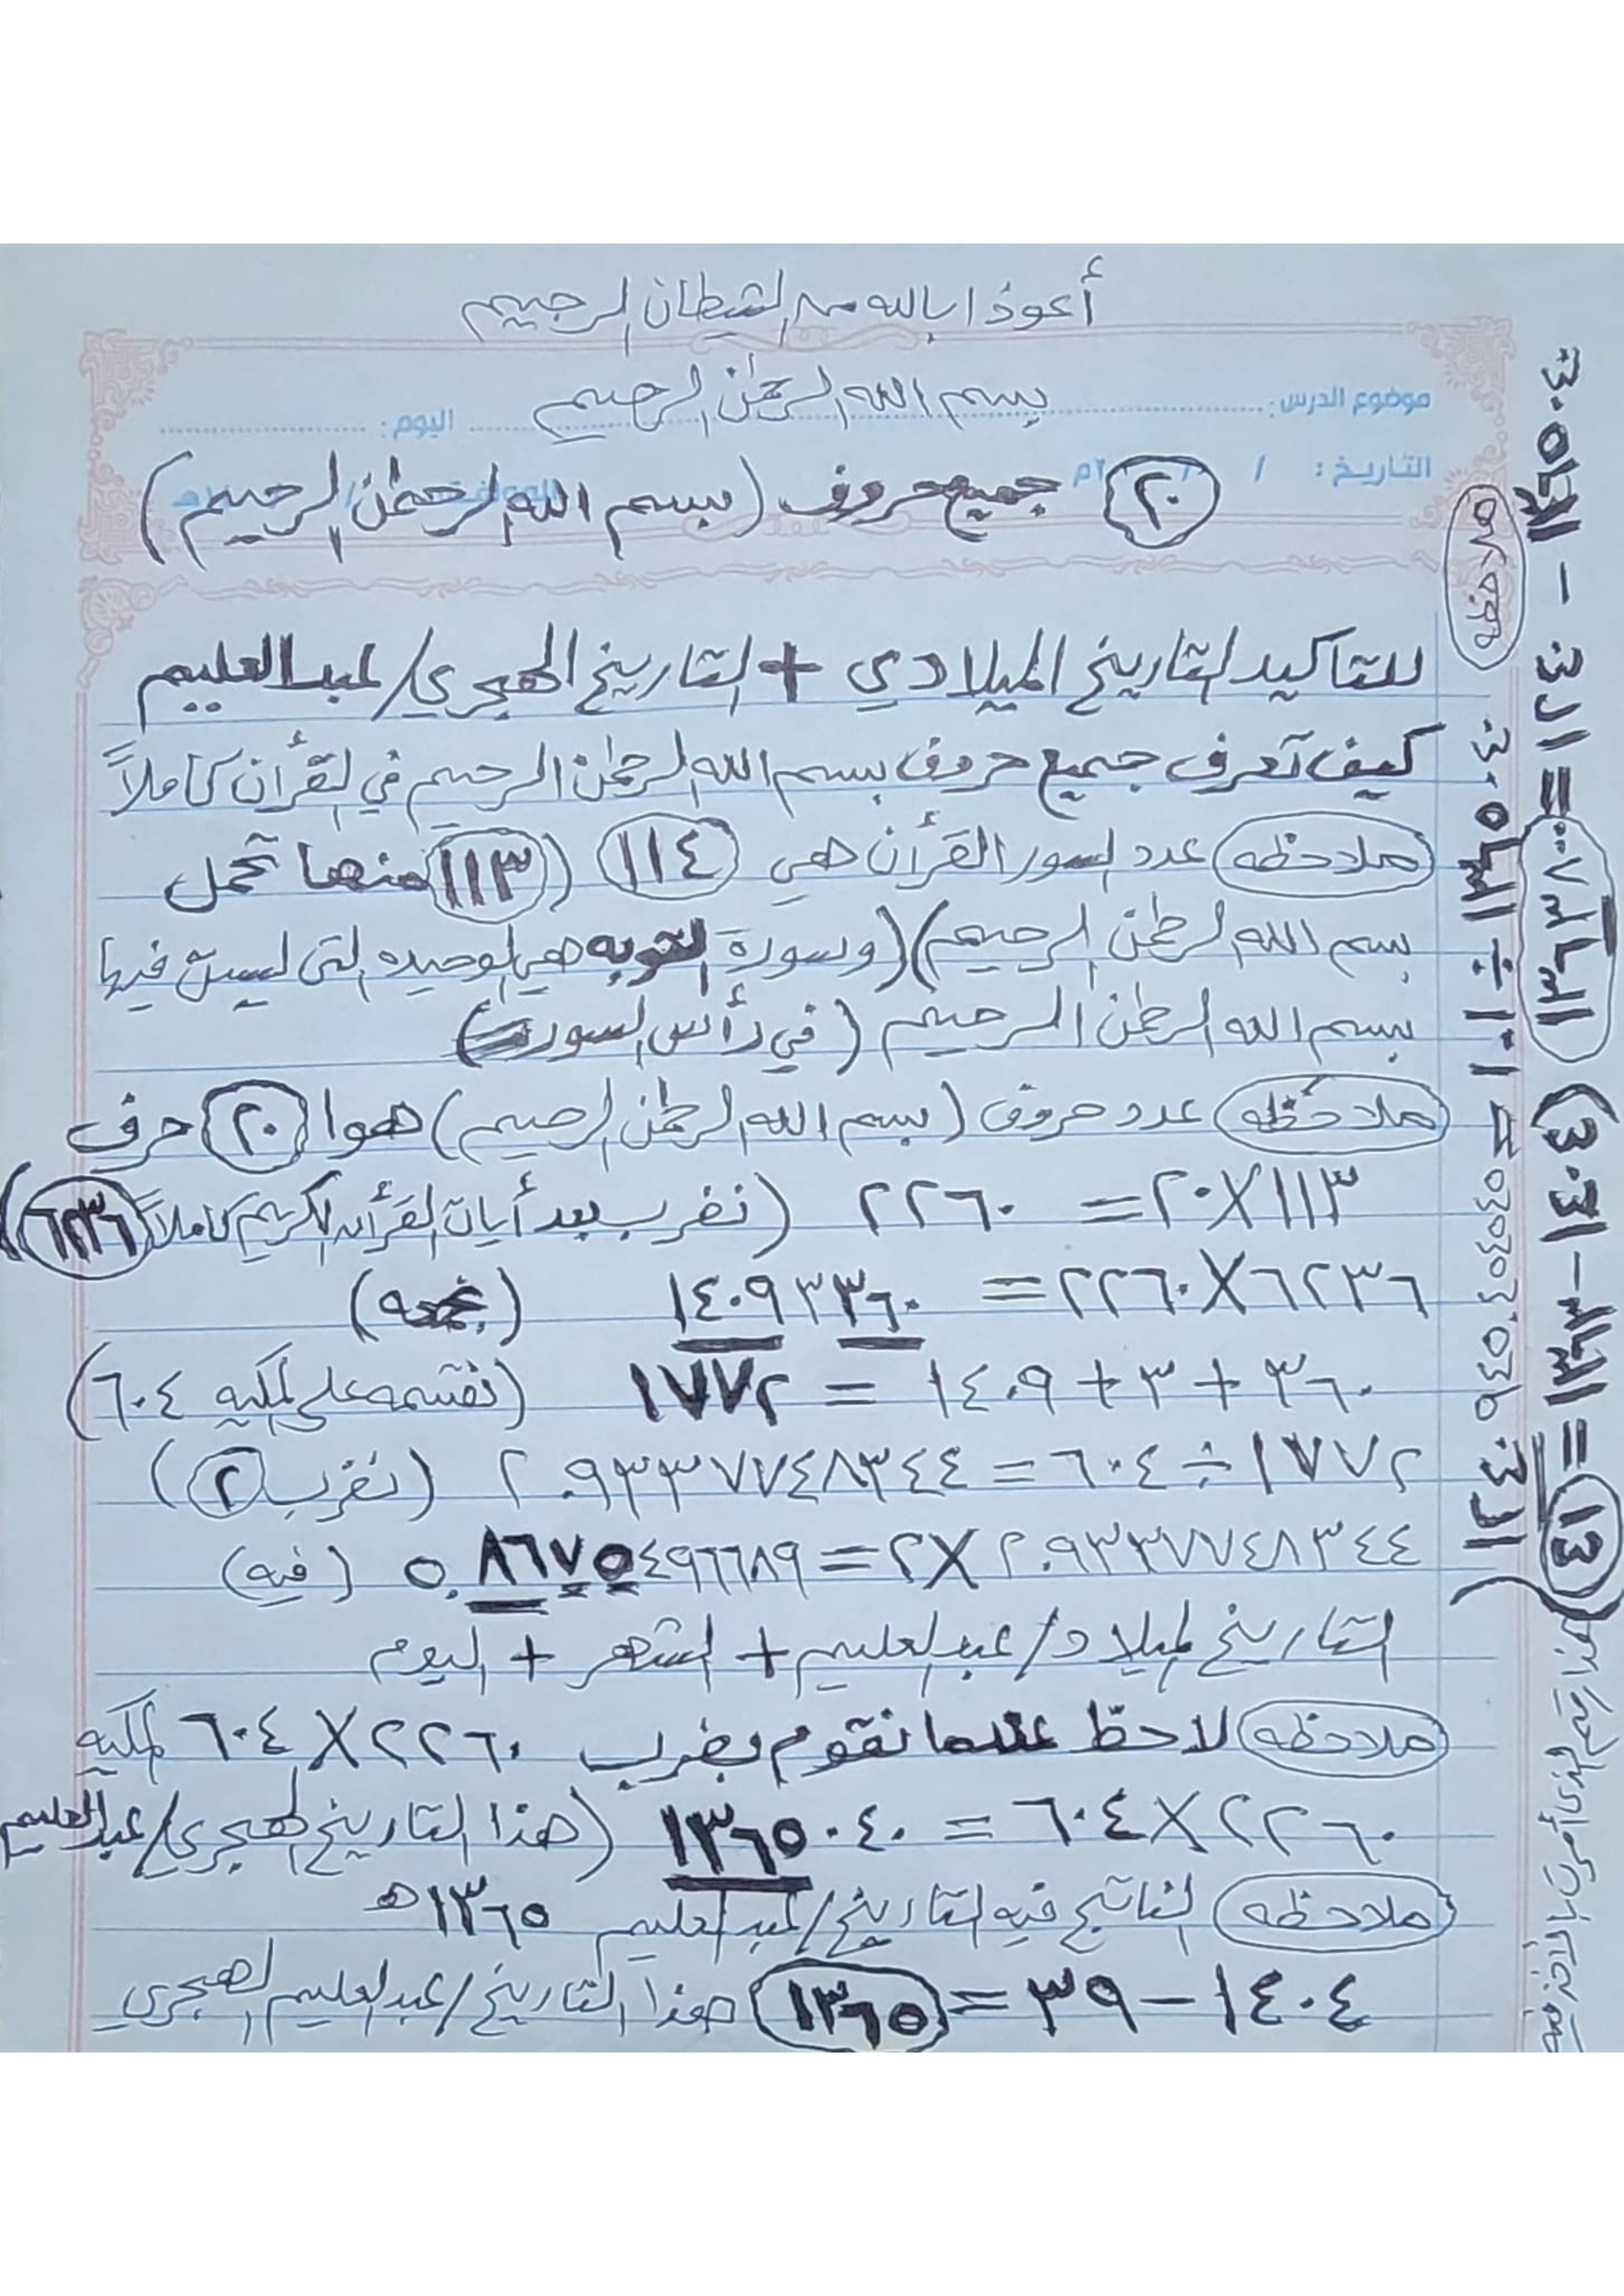 أعوذ بالله من الشيطان الرجيم
بسم الله الرحمن الرحيم
موضوع الدرس : اليوم :
التاريخ : / / ٢٠م
٢٠ جميع حروف (بسم الله الرحمن الرحيم)
للتاكيد التاريخ الميلادي + التاريخ الهجري/عبدالعليم
كيف تعرف جميع حروف بسم الله الرحمن الرحيم في القرأن كاملاً
ملاحظه عدد السور القرأن هي ١١٤ (١١٣ منها تحمل
بسم الله الرحمن الرحيم) (وسورة التوبه هي الوحيده التي ليست فيها
بسم الله الرحمن الرحيم (في رأس السوره)
ملاحظه عدد حروف (بسم الله الرحمن الرحيم) هوا ٢٠ حرف
١١٣×٢٠= ٢٢٦٠ (نضرب بعد أيات القرأن الكريم كاملاً ٦٢٣٦)
٦٢٣٦×٢٢٦٠= ١٤٠٩٣٣٦٠ (نجمعه)
٣٦٠+٣+١٤٠٩ = ١٧٧٢ (نقسمه على المكيه ٦٠٤)
١٧٧٢÷٦٠٤=٢.٩٣٣٧٧٤٨٣٤٤ (نضرب ٢)
٢.٩٣٣٧٧٤٨٣٤٤×٢=٥.٨٦٧٥٤٩٦٦٨٩ (فيه)
التاريخ الميلاد/عبدالعليم+ الشهر + اليوم
ملاحظه لاحظ عندما نقوم بضرب ٢٢٦٠×٦٠٤ المكيه
٢٢٦٠×٦٠٤ = ١٣٦٥٠٤٠ (هذا التاريخ الهجري/عبدالعليم
ملاحظه الناتج فيه التاريخ/عبدالعليم ١٣٦٥ه
١٤٠٤-٣٩=١٣٦٥ هذا التاريخ/عبدالعليم الهجري
ملاحظه
١٣٦٥٠٤٠÷١١٠١= ١٢٤